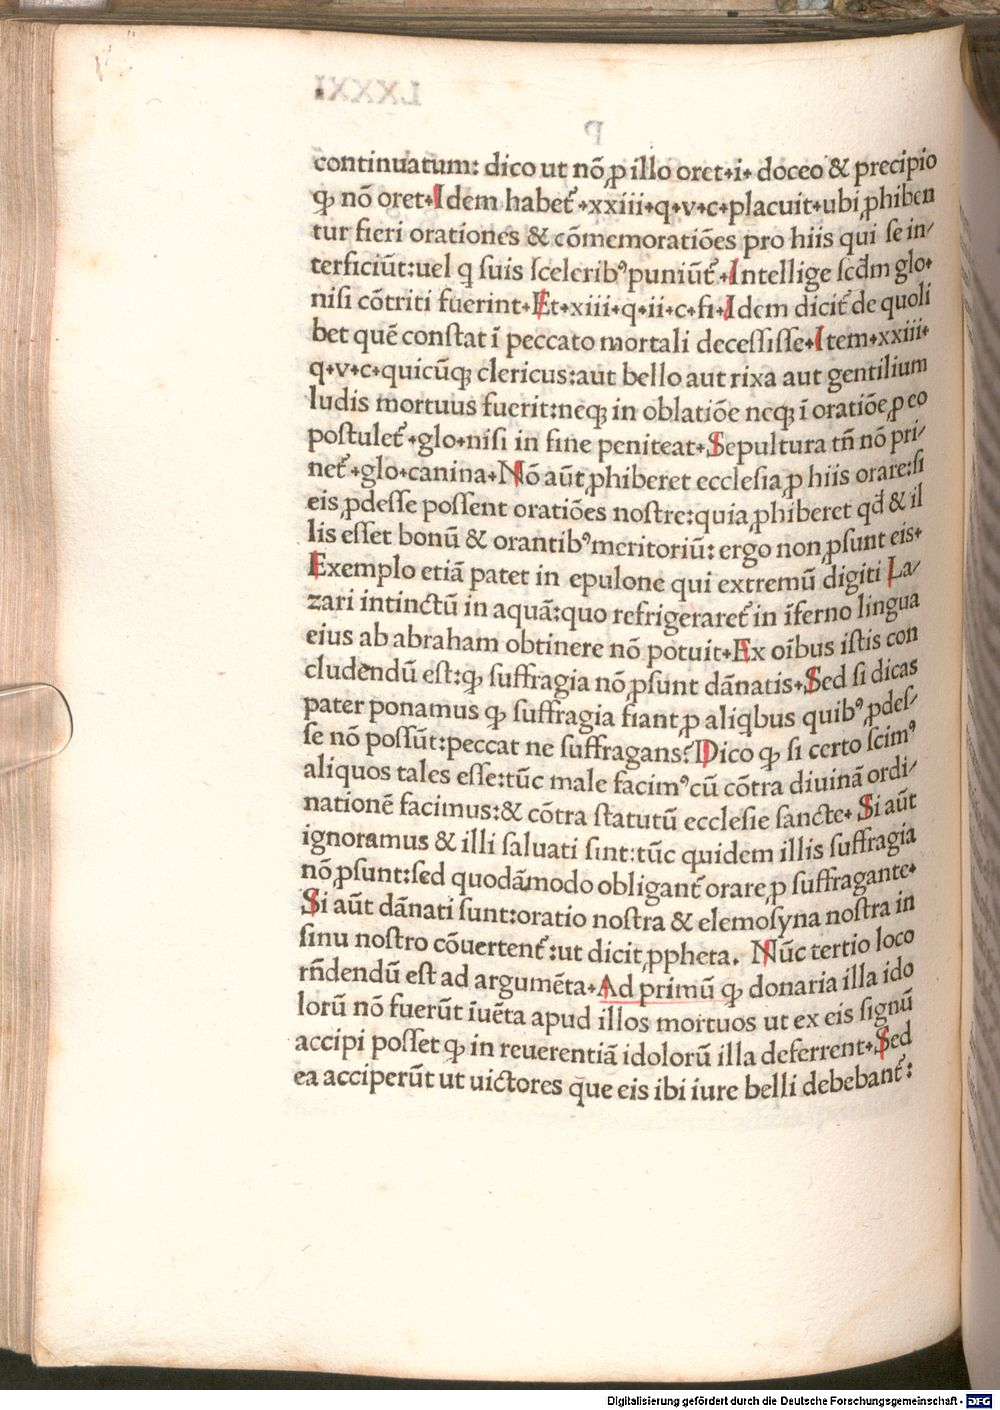 continuatum: dico ut nõ ꝓ illo oret·i· doceo & precipio
ꝙ nõ oret·Idem habet᷑·xxiii·q·v·c·placuit·ubi ꝓhiben
tur fieri orationes & cõmemoratiões pro hiis qui ſe in/
terficiũt:uel q ſuis ſceleribꝰ puniũt᷑·Intellige ſcd̄m glo·
niſi cõtriti fuerint·Et·xiii·q·ii·c·fi·Idem dicit᷑ de quoli
bet quẽ conſtat ĩ peccato mortali deceſſiſſe·Item·xxiii·
q·v·c·quicũqꝫ clericus:aut bello aut rixa aut gentilium
ludis mortuus fuerit:neqꝫ in oblatiõe neqꝫ ĩ oratiõe ꝓ eo
poſtulet᷑·glo·niſi in fine peniteat·Sepultura tñ nõ pri/
net᷑·glo·canina·Nõ aũt ꝓhiberet eccleſia ꝓ hiis orare:ſi
eis ꝓdeſſe poſſent oratiões noſtre:quia ꝓhiberet qđ & il
lis eſſet bonũ & orantibꝰ meritoriũ: ergo non ꝓſunt eis·
Exemplo etiã patet in epulone qui extremũ digiti La/
zari intinctũ in aquã:quo refrigeraret᷑ in ĩferno lingua
eius ab abraham obtinere nõ potuit·Ex oĩbus iſtis con
cludendũ eſt:ꝙ ſuffragia nõ ꝓſunt dãnatis·Sed ſi dicas
pater ponamus ꝙ ſuffragia fiant ꝓ aliqbus quibꝰ ꝓdeſ/
ſe nõ poſſũt:peccat ne ſuffragans? Dico ꝙ ſi certo ſcimꝰ
aliquos tales eſſe:tũc male facimꝰ cũ cõtra diuinã ordi/
nationẽ facimus:& cõtra ſtatutũ eccleſie ſancte· Si aũt
ignoramus & illi ſaluati ſint:tũc quidem illis ſuffragia
nõ ꝓſunt:ſed quodãmodo obligant᷑ orare ꝓ ſuffragante·
Si aũt dãnati ſunt:oratio noſtra & elemoſyna noſtra in
ſinu noſtro cõuertent᷑:ut dicit ꝓpheta. Nũc tertio loco
rñdendũ eſt ad argumẽta·Ad primũ ꝙ donaria illa ido
lorũ nõ fuerũt ĩuẽta apud illos mortuos ut ex eis ſignũ
accipi poſſet ꝙ in reuerentiã idolorũ illa deferrent·Sed
ea acciperũt ut uictores que eis ibi iure belli debebant᷑:
Digitalisierung gefördert durch die Deutsche Forschungsgemeinschaft - DFG